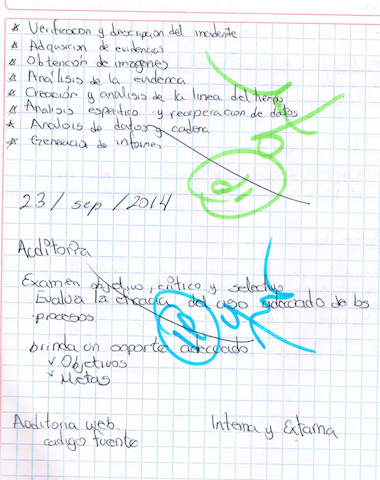 * Verificacion y descripcion del incidente
* Adquisicion de evidencias
* Obtención de imagenes
* Análisis de la evidencia
* Creación y analisis de la linea del tiempo
* Analisis especifico y recuperacion de datos
* Analisis de datos y cadena
* Generacia de informes
23/sep/2014
Auditoria
Examen objetivo, critico y selectivo
Evalua la eficacia del uso adecuado de los
procesos
brinda un soporte adecuado
✓ Objetivos
✓ Metas
Auditoria web Interna y Externa
codigo fuente